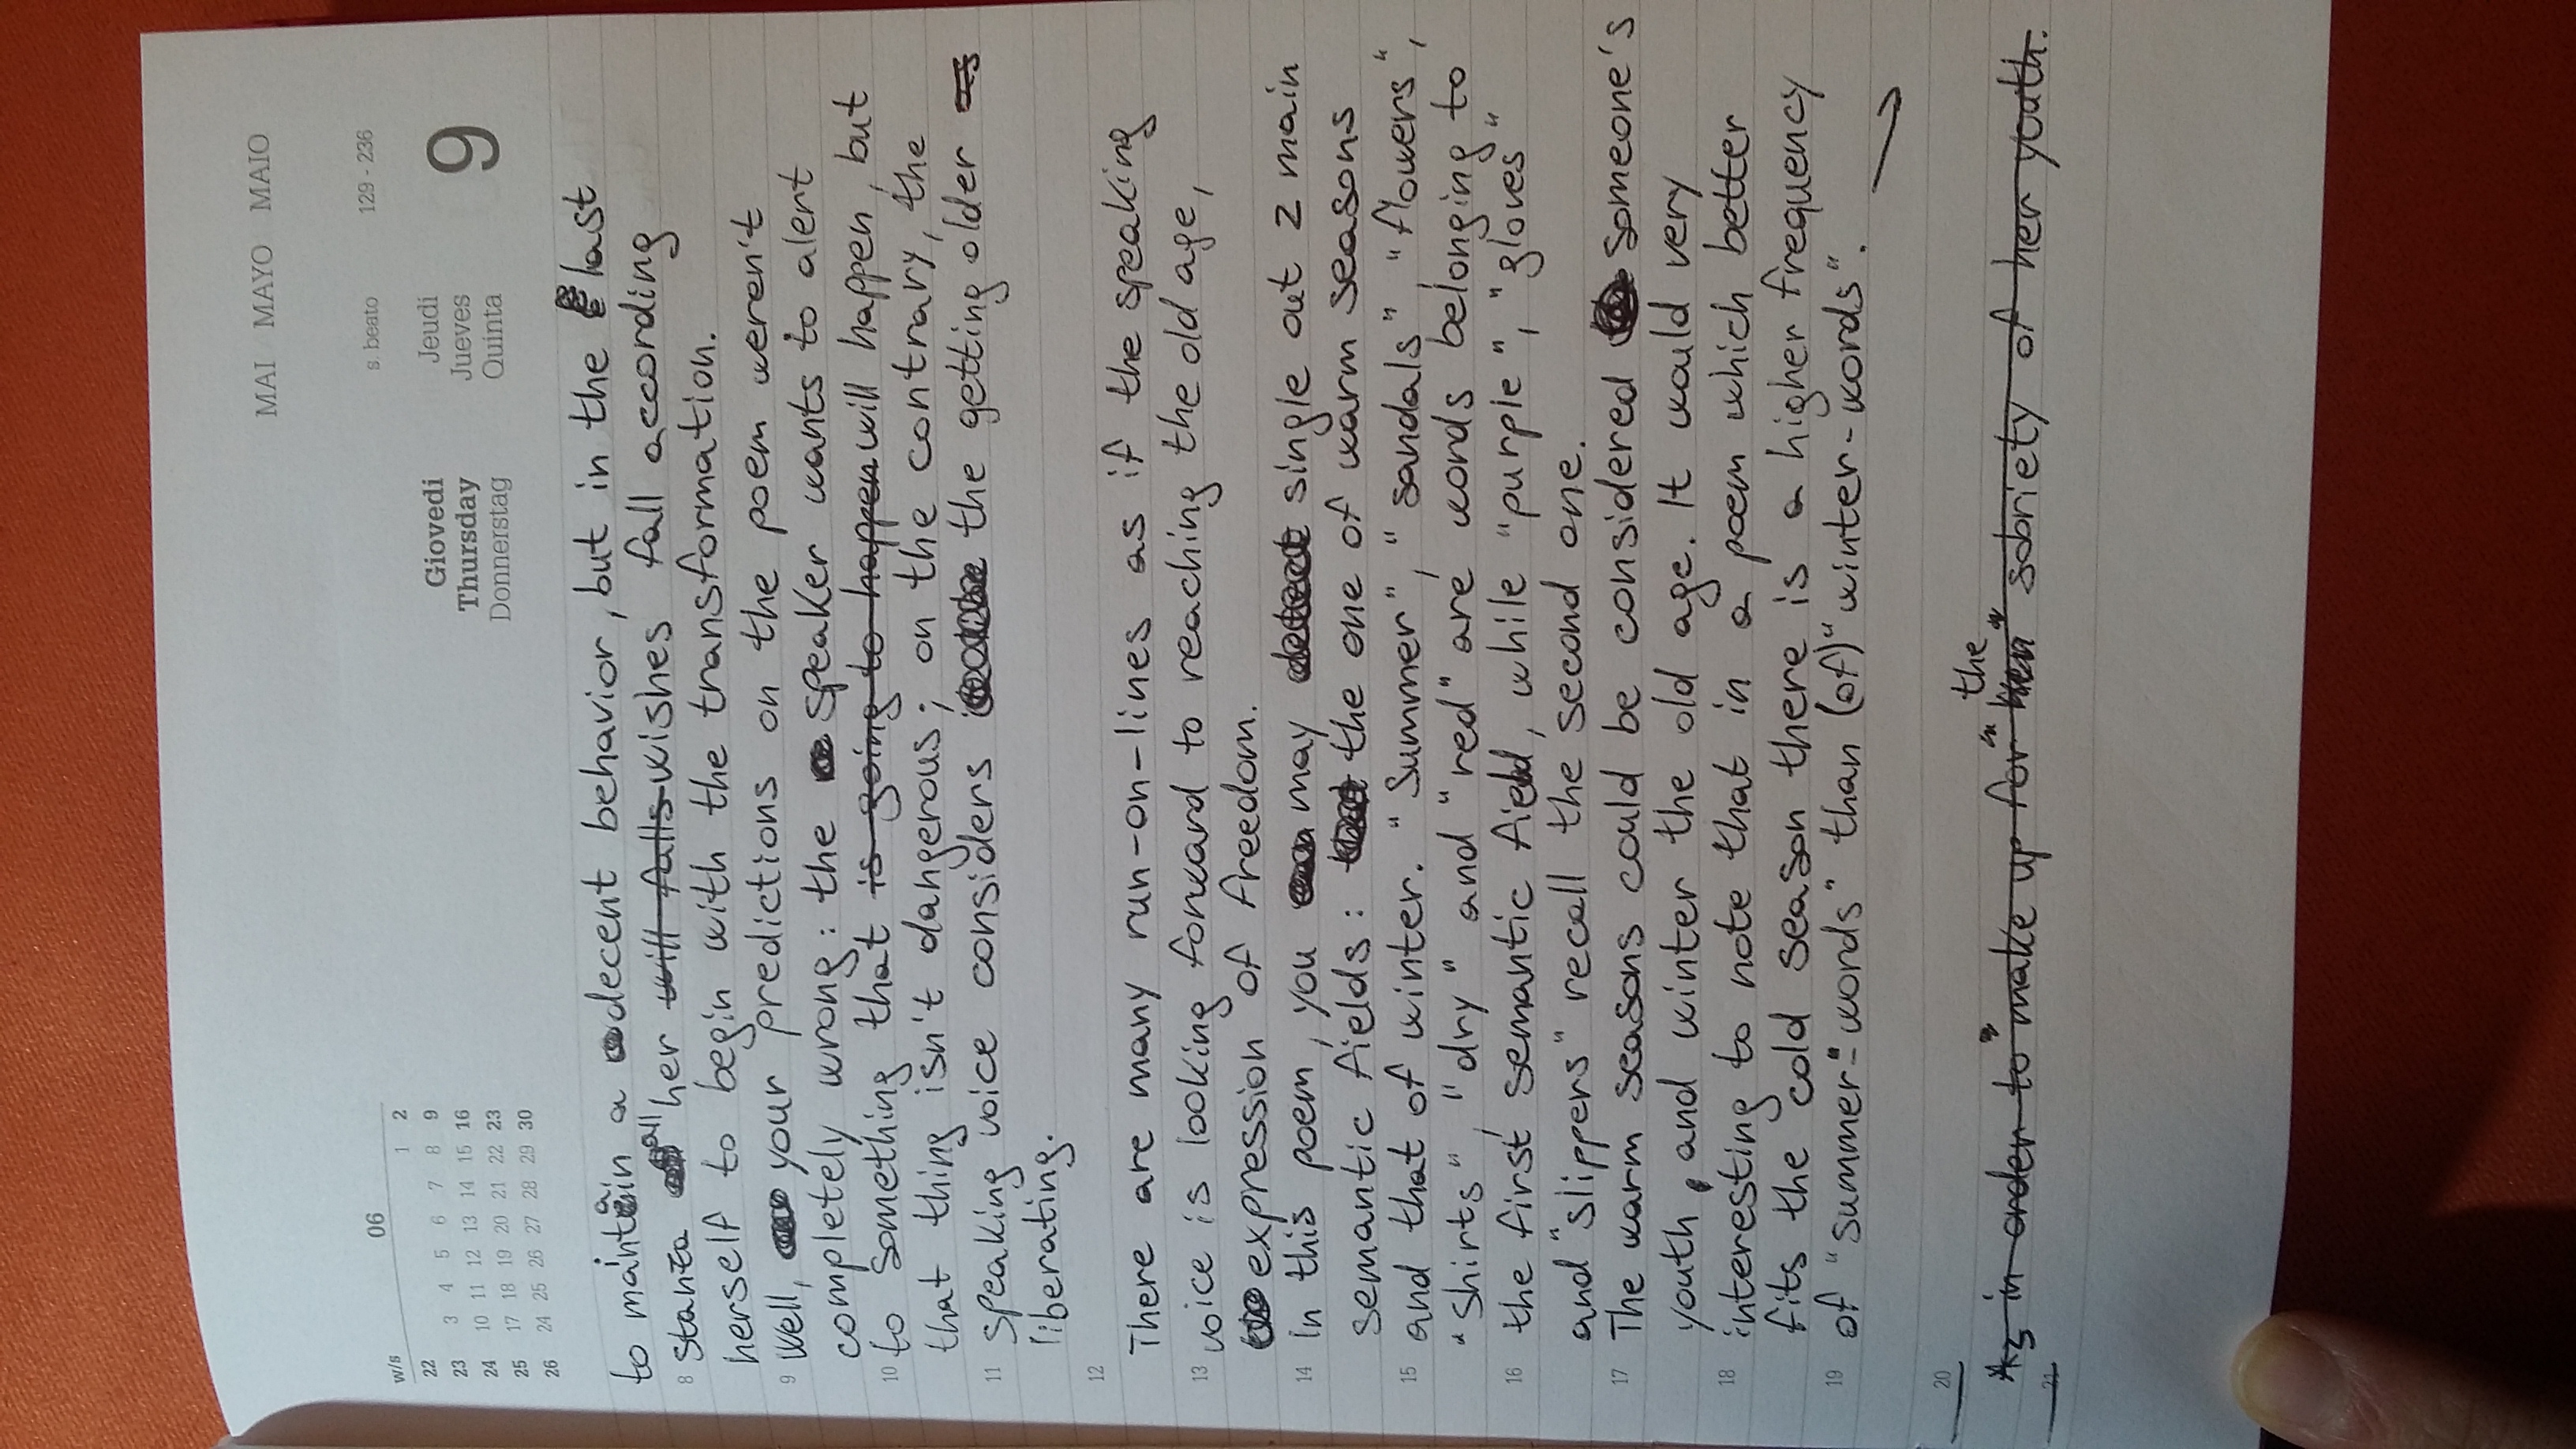 MAI MAYO MAIO
06
w/s 1 2
22 3 4 5 6 7 8 9
23 10 11 12 13 14 15 16
24 17 18 19 20 21 22 23
25 24 25 26 27 28 29 30
26
s.beato 129 - 236
Giovedi Jeudi 9
Thursday Jueves
Donnerstag Quinta
to maintain a decent behavior, but in the last
8 stanza all her will falls wishes fall according
herself to begin with the transformation.
9 Well, your predictions on the poem weren't
completely wrong: the speaker wants to alert
10 to something that is going to happen will happen, but
that thing isn't dangerous; on the contrary, the
11 speaking voice considers the getting older as
liberating.
12
There are many run-on-lines as if the speaking
13 voice is looking forward to reaching the old age,
expression of freedom.
14 In this poem, you may detect single out 2 main
semantic fields: the one of warm seasons
15 and that of winter. "Summer", "sandals" "flowers",
"shirts", "dry" and "red" are words belonging to
16 the first semantic field, while "purple", "gloves"
and "slippers" recall the second one.
17 The warm seasons could be considered someone's
youth, and winter the old age. It would very
18 interesting to note that in a poem which better
fits the cold season there is a higher frequency
19 of "summer-words" than (of) "winter-words".
20 the
As in order to "make up for" her "sobriety of her youth.
21